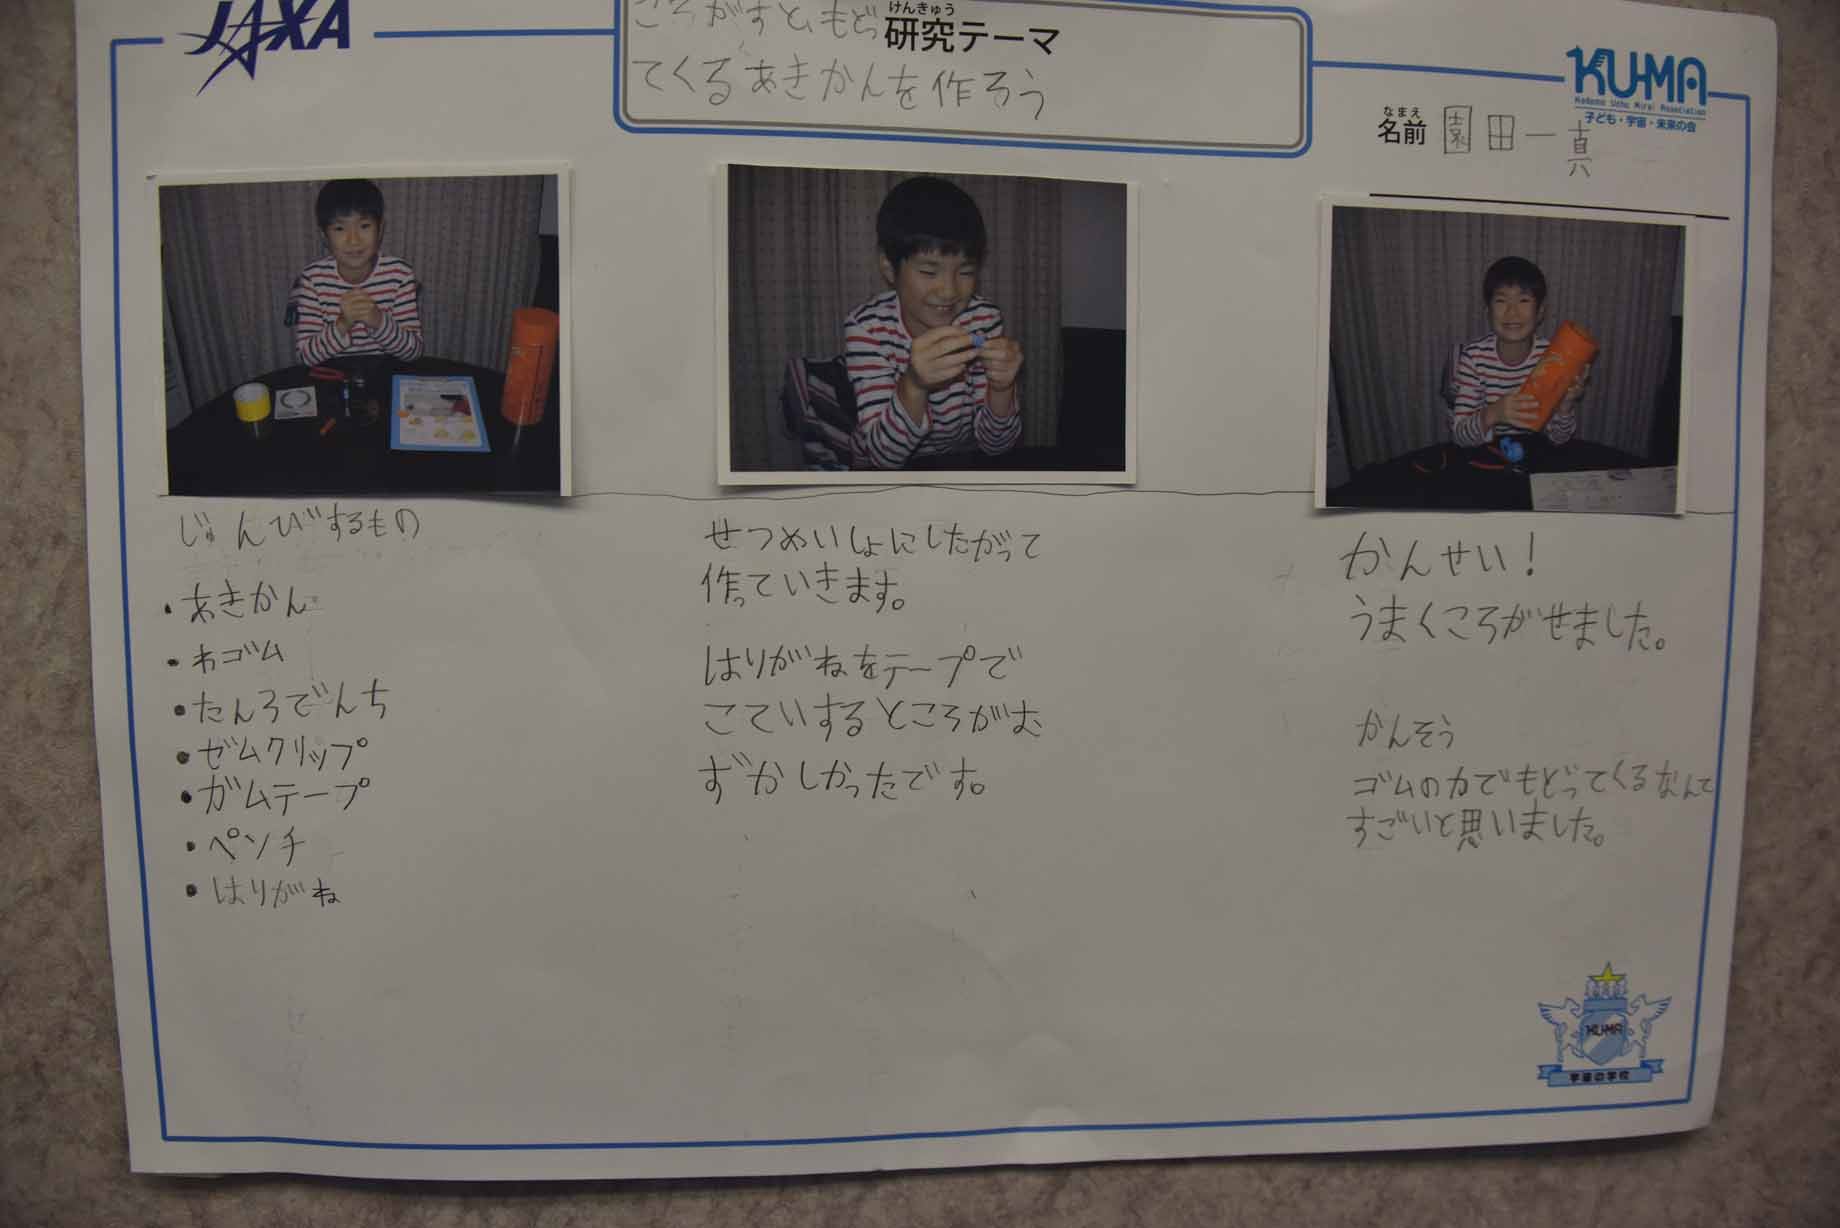 JAXA
けんきゅう
研究テーマ
ころがすと、もどっ
てくるあきかんを作ろう
KU-MA
Kodomo Uchu Mirai Association
子ども・宇宙・未来の会
なまえ
名前 園田一真
じゅんびするもの
・あきかん
・わゴム
・たんろでんち
・ゼムクリップ
・ガムテープ
・ペンチ
・はりがね
せつめいしょにしたがって
作っていきます。
はりがねをテープで
こていするところがむ
ずかしかったです。
かんせい!
うまくころがせました。
かんそう
ゴムの力でもどってくるなんて
すごいと思いました。
KU-MA
宇宙の学校